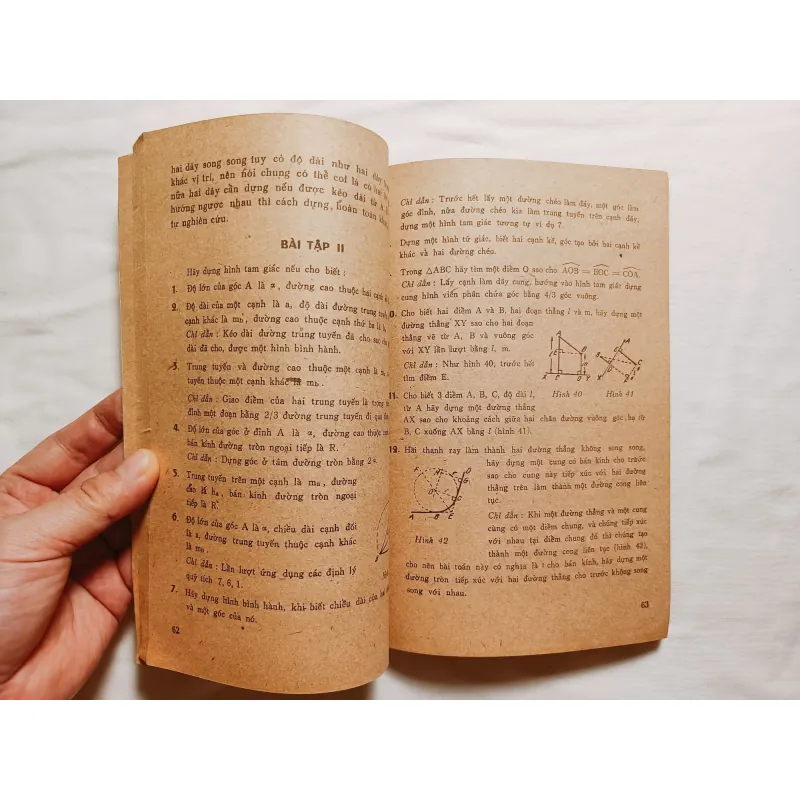 hai dây song song tuy có độ dài như hai dây
khác vị trí, nên nói chung có thể coi là có hai
nữa hai dây cần dựng nếu được kéo dài từ A
hướng ngược nhau thì cách dựng hoàn toàn
tự nghiên cứu.
BÀI TẬP II
Hãy dựng hình tam giác nếu cho biết :
1. Độ lớn của góc A là α, đường cao thuộc hai cạnh
2. Độ dài của một cạnh là a, độ dài đường trung tuyến
cạnh khác là mb, đường cao thuộc cạnh thứ ba là
Chỉ dẫn : Kéo dài đường trung tuyến đã cho sao cho
dài đã cho, được một hình bình hành.
3. Trung tuyến và đường cao thuộc một cạnh là
tuyến thuộc một cạnh khác là mb.
Chỉ dẫn : Giao điểm của hai trung tuyến là trọng
đỉnh một đoạn bằng 2/3 đường trung tuyến đi qua
4. Độ lớn của góc ở đỉnh A là α, đường cao thuộc
bán kính đường tròn ngoại tiếp là R.
Chỉ dẫn : Dựng góc ở tâm đường tròn bằng 2α
5. Trung tuyến trên một cạnh là ma, đường
cao là ha, bán kính đường tròn ngoại
tiếp là R.
6. Độ lớn của góc A là α, chiều dài cạnh đối
là a, đường trung tuyến thuộc cạnh khác
là mb.
Chỉ dẫn : Lần lượt ứng dụng các định lý
quỹ tích 7, 6, 1.
7. Hãy dựng hình bình hành, khi biết chiều dài của hai
và một góc của nó.
62
Chỉ dẫn : Trước hết lấy một đường chéo làm đáy, một góc làm
góc đỉnh, nửa đường chéo kia làm trung tuyến trên cạnh đáy,
dựng một hình tam giác tương tự ví dụ 7.
Dựng một hình tứ giác, biết hai cạnh kề, góc tạo bởi hai cạnh kề
khác và hai đường chéo.
Trong △ABC hãy tìm một điểm O sao cho AOB = BOC = COA.
Chỉ dẫn : Lấy cạnh làm dây cung, hướng vào hình tam giác dựng
cung hình viên phân chứa góc bằng 4/3 góc vuông.
0. Cho biết hai điểm A và B, hai đoạn thẳng l và m, hãy dựng một
đường thẳng XY sao cho hai đoạn
thẳng vẽ từ A, B và vuông góc
với XY lần lượt bằng l, m.
Chỉ dẫn : Như hình 40, trước hết
tìm điểm E.
Hình 40 Hình 41
11. Cho biết 3 điểm A, B, C, độ dài l,
từ A hãy dựng một đường thẳng
AX sao cho khoảng cách giữa hai chân đường vuông góc hạ từ
B, C xuống AX bằng l (hình 41).
12. Hai thanh ray làm thành hai đường thẳng không song song,
hãy dựng một cung có bán kính cho trước
sao cho cung này tiếp xúc với hai đường
thẳng trên làm thành một đường cong liên
tục.
Chỉ dẫn : Khi một đường thẳng và một cung
cùng có một điểm chung, và chúng tiếp xúc
với nhau tại điểm chung đó thì chúng tạo
Hình 42
thành một đường cong liên tục (hình 42),
cho nên bài toán này có nghĩa là : cho bán kính, hãy dựng một
đường tròn tiếp xúc với hai đường thẳng cho trước không song
song với nhau.
63